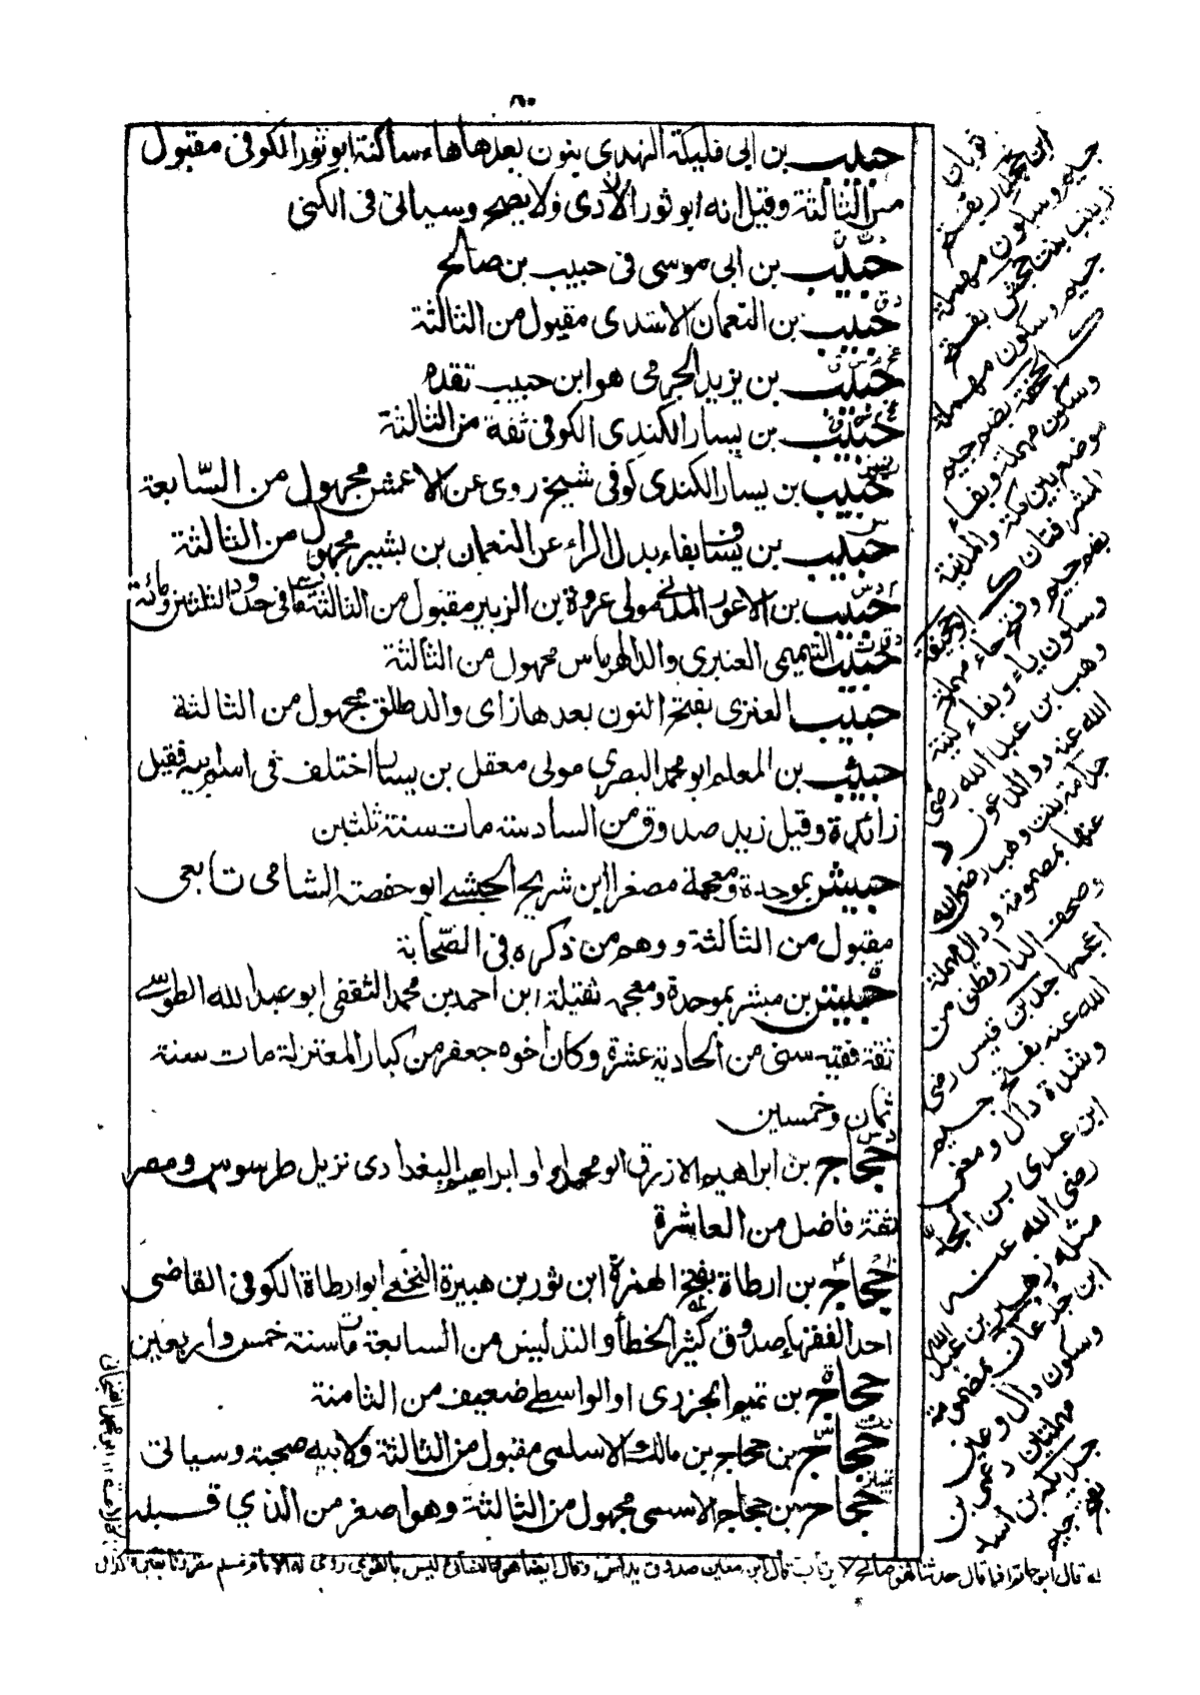 ٨٠
حبيب بن ابى مليكة النهدى بنون بعدها هاء ساكنة ابو ثور الكوفى مقبول
من الثالثة وقيل انه ابو ثور الازدى ولا يصح وسياتى فى الكنى
حبيب بن ابى موسى فى حبيب بن صالح
حبيب بن النعمان الاسدى مقبول من الثالثة
حبيب بن يزيد الجرمى هو ابن حبيب تقدم
حبيب بن يسار الكندى الكوفى ثقة من الثالثة
حبيب بن يسار الكندى كوفى شيخ روى عن الاعمش مجهول من السابعة
حبيب بن يساف بفاء بدل الراء عن النعمان بن بشير مجهول من الثالثة
حبيب بن الاعور المدنى مولى عروة بن الزبير مقبول من الثالثة مات فى حدود الثلثين ومائة
حبيب التميمى العنبرى والد الهرماس مجهول من الثالثة
حبيب العنزى بفتح النون بعدها زاى والد طلق مجهول من الثالثة
حبيب بن المعلم ابو محمد البصرى مولى معقل بن يسار اختلف فى اسم ابيه فقيل
زائدة وقيل زيد صدوق من السادسة مات سنة ثلثين
حبيش بموحدة ومعجمة مصغرا ابن شريح الحبشى ابو حفصة الشامى تابعى
مقبول من الثالثة ووهم من ذكره فى الصحابة
حبيش بن مبشر بموحدة ومعجمه ثقيلة ابن احمد بن محمد الثقفى ابو عبد الله الطوسى
ثقة فقيه سنى من الحادية عشرة وكان اخوه جعفر من كبار المعتزلة مات سنة
ثمان وخمسين
حجاج بن ابراهيم الازرق ابو محمد او ابو ابراهيم البغدادى نزيل طرسوس ومصر
ثقة فاضل من العاشرة
حجاج بن ارطاة بفتح الهمزة ابن ثور بن هبيرة النخعى ابو ارطاة الكوفى القاضى
احد الفقهاء صدوق كثير الخطأ والتدليس من السابعة مات سنة خمس واربعين
حجاج بن تميم الجزرى او الواسطى ضعيف من الثامنة
حجاج بن حجاج بن مالك الاسلمى مقبول من الثالثة ولابيه صحبة وسياتى
حجاج بن حجاج الاسلمى مجهول من الثالثة وهو اصغر من الذى قبله
جيم وسكون مهملة
زينب بنت جحش بفتح
جيم وسكون مهملة
الجحفة بضم جيم
وسكون مهملة وبفاء
موضع بين مكة والمدينة
بضم جيم وفتح حاء مهملة
وسكون ياء وبفاء كنية
وهب بن عبد الله رضى
الله عنه
جدامة بنت وهب رضى الله
عنها بمضمومة ودال مهملة
جد بن قيس رضى
الله عنه بفتح جيم
وشدة دال
رضى الله عنه
ابن جدعان بمضمومة
وسكون دال وعين